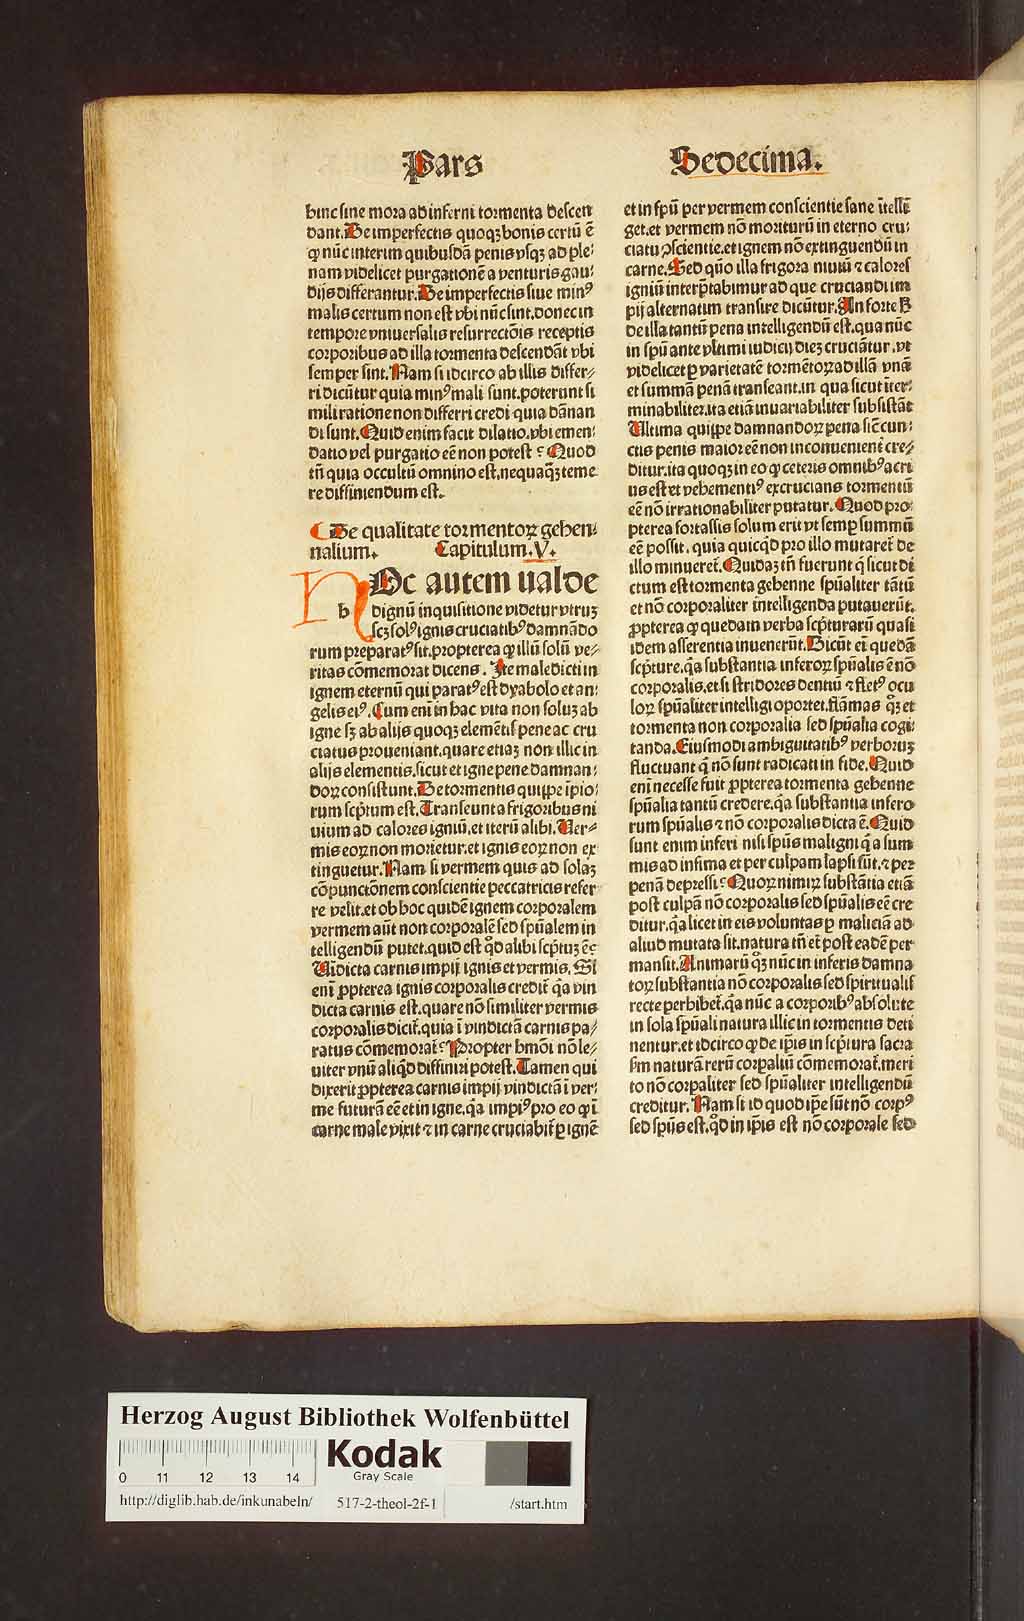 Pars Sedecima.
hinc sine mora ad inferni tormenta descen
dant. De imperfectis quoqꝫ bonis certũ ẽ
ꝙ nũc interim quibusdã penis vsqꝫ ad ple⸗
nam videlicet purgationẽ a venturis gau⸗
dijs differantur. De imperfectis siue minꝰ
malis certum non est vbi nũc sint. donec in
tempore vniuersalis resurrectõis receptis
corporibus ad illa tormenta descendãt vbi
semper sint. Nam si idcirco ab illis differ⸗
ri dicũtur quia minꝰ mali sunt. poterunt si
mili ratione non differri credi quia dãnan
di sunt. Quid enim facit dilatio. vbi emen⸗
datio vel purgatio eẽ non potest? Quod
tñ quia occultũ omnino est. nequaqꝫ teme
re diffiniendum est.
De qualitate tormentoꝝ gehen⸗
nalium. Capitulum. V.
h
Oc autem ualde
dignũ inquisitione videtur vtruꝫ
scꝫ solꝰ ignis cruciatibꝰ damnãdo
rum preparatꝰ sit. propterea ꝙ illũ solũ ve⸗
ritas cõmemorat dicens. Ite maledicti in
ignem eternũ qui paratꝰ est dyabolo et an⸗
gelis eiꝰ. Cum enĩ in hac vita non soluꝫ ab
igne sꝫ ab alijs quoqꝫ elementis pene ac cru
ciatus proueniant. quare etiaꝫ non illic in
alijs elementis. sicut et igne pene damnan⸗
doꝝ consistunt. De tormentis quippe ipio⸗
rum scp̃tum est. Transeunt a frigoribus ni
uium ad calores igniũ. et iterũ alibi. Ver⸗
mis eoꝝ non morietur. et ignis eoꝝ non ex
tinguetur. Nam si vermem quis ad solaꝫ
cõpunctõnem conscientie peccatricis refer
re velit. et ob hoc quidẽ ignem corporalem
vermem aũt non corporalẽ sed sp̃ualem in
telligendũ putet. quid est qd̓ alibi scp̃tuꝫ ẽ?
Uĩdicta carnis impij ignis et vermis. Si
enĩ ꝓpterea ignis corporalis credit̃ q̃a vin
dicta carnis est. quare nõ similiter vermis
corporalis dicit̃. quia ĩ vindictã carnis pa⸗
ratus cõmemorat̃? Propter hmõi nõ le⸗
uiter vnũ aliqd̓ diffiniri potest. Tamen qui
dixerit ꝓpterea carnis impij vindictã ĩ ver⸗
me futurã eẽ et in igne. q̃a impiꝰ pro eo ꝙ ĩ
carne male vixit ⁊ in carne cruciabit̃ ꝑ ignẽ
et in sp̃u per vermem conscientie sane ĩtelli
get. et vermem nõ moriturũ in eterno cru⸗
ciatu ꝯscientie. et ignem nõ extinguendũ in
carne. Sed quõ illa frigora niuiũ ⁊ calores
igniũ interp̃tabimur ad que cruciandi im
pij alternatim transire dicũtur. An forte h̓
de illa tantũ pena intelligendũ est. qua nũc
in sp̃u ante vltimi iudicij dieꝫ cruciãtur. vt
videlicet ꝑ varietatẽ tormẽtoꝝ ad illã vnã
et summã penã transeant. in qua sicut iter⸗
minabiliter. ita etiã inuariabiliter subsistãt
Ultima quippe damnandoꝝ pena sicũt cun⸗
ctis penis maior eẽ non inconuenient̃ cre⸗
ditur. ita quoqꝫ in eo ꝙ ceteris omnibꝰ acri
us est et vehementiꝰ excrucians tormentũ
eẽ nõ irrationabiliter putatur. Quod pro⸗
pterea fortassis solum erit vt semꝑ summũ
eẽ possit. quia quicqd̓ pro illo mutaret̃ de
illo minueret̃. Quidaꝫ tñ fuerunt q̃ sicut di
ctum est tormenta gehenne sp̃ualiter tãtũ
et nõ corporaliter intelligenda putauerũt.
ꝓpterea ꝙ quedam verba scp̃turarũ quasi
idem asserentia inuenerũt. Dicũt eĩ quedã
scp̃ture. q̃a substantia inferoꝝ sp̃ualis ẽ nõ
corporalis. et si stridores dentiũ ⁊ fletꝰ ocu
loꝝ sp̃ualiter intelligi oportet. flãmas q̃ꝫ et
tormenta non corporalia sed sp̃ualia cogi⸗
tanda. Eiusmodi ambiguitatibꝰ verboruꝫ
fluctuant q̃ nõ sunt radicati in fide. Quid
enĩ necesse fuit ꝓpterea tormenta gehenne
sp̃ualia tantũ credere. q̃a substantia infero
rum sp̃ualis ⁊ nõ corporalis dicta ẽ. Quid
sunt enim inferi nisi sp̃us maligni q̃ a sum
mis ad infima et per culpam lapsi sũt. ⁊ per
penã depressi? Quoꝝ nimiꝝ substãtia etiã
post culpã nõ corporalis sed sp̃ualis eẽ cre
ditur. q̃a licet in eis voluntas ꝑ maliciã ad
aliud mutata sit. natura tñ et̃ post eadẽ per
mansit. Animarũ q̃ꝫ nũc in inferis damna
toꝝ substantia nõ corporalis sed spiritualis
recte perhibet̃. q̃a nũc a corporibꝰ absolute
in sola sp̃uali natura illic in tormentis deti
nentur. et idcirco ꝙ de ip̃is in scp̃tura sacra
s̃m naturã rerũ corꝑaliũ cõmemorat̃. meri
to nõ corꝑaliter sed sp̃ualiter intelligendũ
creditur. Nam si id quod ip̃e sũt nõ corpꝰ
sed sp̃us est. qd̓ in ip̃is est nõ corporale sed
Herzog August Bibliothek Wolfenbüttel
Kodak
Gray Scale
0 11 12 13 14
http://diglib.hab.de/inkunabeln/ 517-2-theol-2f-1 /start.htm